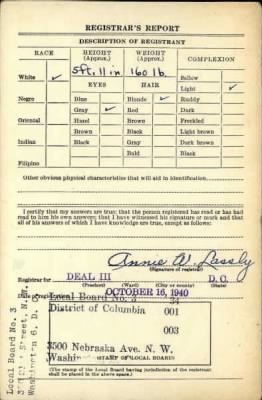 REGISTRAR'S REPORT
DESCRIPTION OF REGISTRANT
RACE HEIGHT (Approx.) WEIGHT (Approx.) COMPLEXION
White ✓ 5ft. 11 in. 160 lb. Sallow
EYES HAIR Light ✓
Negro Blue Blonde ✓ Ruddy
Gray ✓ Red Dark
Oriental Hazel Brown Freckled
Brown Black Light brown
Indian Black Gray Dark brown
Bald Black
Filipino
Other obvious physical characteristics that will aid in identification
I certify that my answers are true; that the person registered has read or has had
read to him his own answers; that I have witnessed his signature or mark and that
all of his answers of which I have knowledge are true, except as follows:
Annie W. Lassly
(Signature of registrar)
Registrar for DEAL III D. C.
(Precinct) (Ward) (City or county) (State)
Date of registration OCTOBER 16, 1940
Local Board No. 3 34
District of Columbia 001
003
3500 Nebraska Ave. N. W.
(STAMP OF LOCAL BOARD)
(The stamp of the Local Board having jurisdiction of the registrant
shall be placed in the above space.)
Local Board No. 3
Street, N.W.
Washington 6, D.